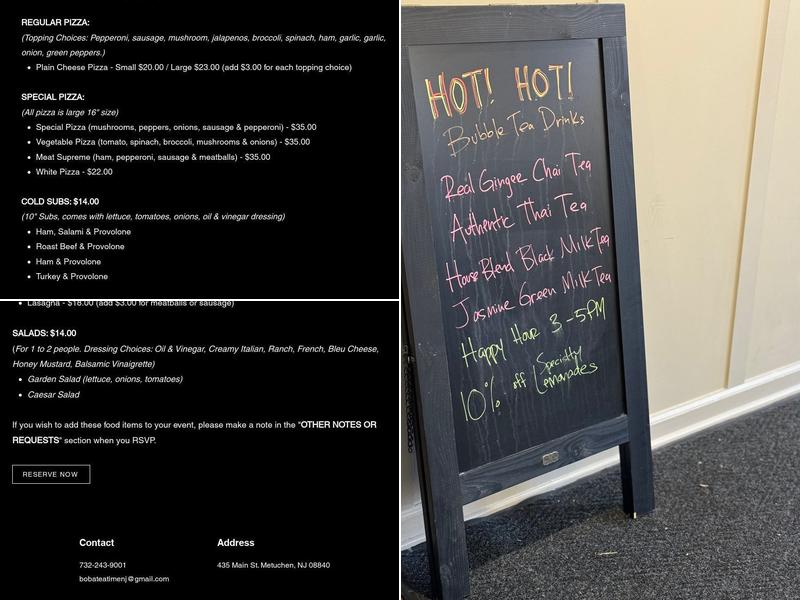 REGULAR PIZZA:
(Topping Choices: Pepperoni, sausage, mushroom, jalapenos, broccoli, spinach, ham, garlic, garlic,
onion, green peppers.)
• Plain Cheese Pizza - Small $20.00 / Large $23.00 (add $3.00 for each topping choice)
SPECIAL PIZZA:
(All pizza is large 16" size)
• Special Pizza (mushrooms, peppers, onions, sausage & pepperoni) - $35.00
• Vegetable Pizza (tomato, spinach, broccoli, mushrooms & onions) - $35.00
• Meat Supreme (ham, pepperoni, sausage & meatballs) - $35.00
• White Pizza - $22.00
COLD SUBS: $14.00
(10" Subs, comes with lettuce, tomatoes, onions, oil & vinegar dressing)
• Ham, Salami & Provolone
• Roast Beef & Provolone
• Ham & Provolone
• Turkey & Provolone
• Lasagna - $18.00 (add $3.00 for meatballs or sausage)
SALADS: $14.00
(For 1 to 2 people. Dressing Choices: Oil & Vinegar, Creamy Italian, Ranch, French, Bleu Cheese,
Honey Mustard, Balsamic Vinaigrette)
• Garden Salad (lettuce, onions, tomatoes)
• Caesar Salad
If you wish to add these food items to your event, please make a note in the "OTHER NOTES OR
REQUESTS" section when you RSVP.
RESERVE NOW
Contact
732-243-9001
bobateatimenj@gmail.com
Address
435 Main St. Metuchen, NJ 08840
HOT! HOT!
Bubble Tea Drinks
Real Ginger Chai Tea
Authentic Thai Tea
House Blend Black Milk Tea
Jasmine Green Milk Tea
Happy Hour 3-5PM
10% off Specialty
Lemonades